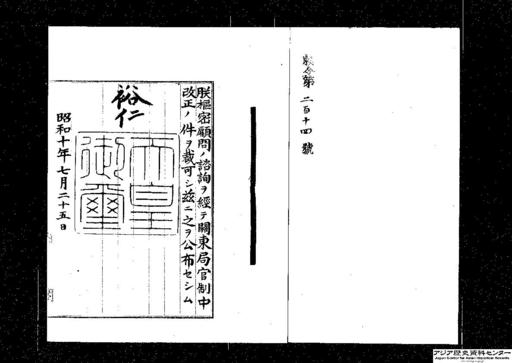 勅令第二百十四號
朕樞密顧問ノ諮詢ヲ經テ關東局官制中
改正ノ件ヲ裁可シ玆ニ之ヲ公布セシム
裕仁
天皇
御璽
昭和十年七月二十五日
アジア歴史資料センター
Japan Center for Asian Historical Records